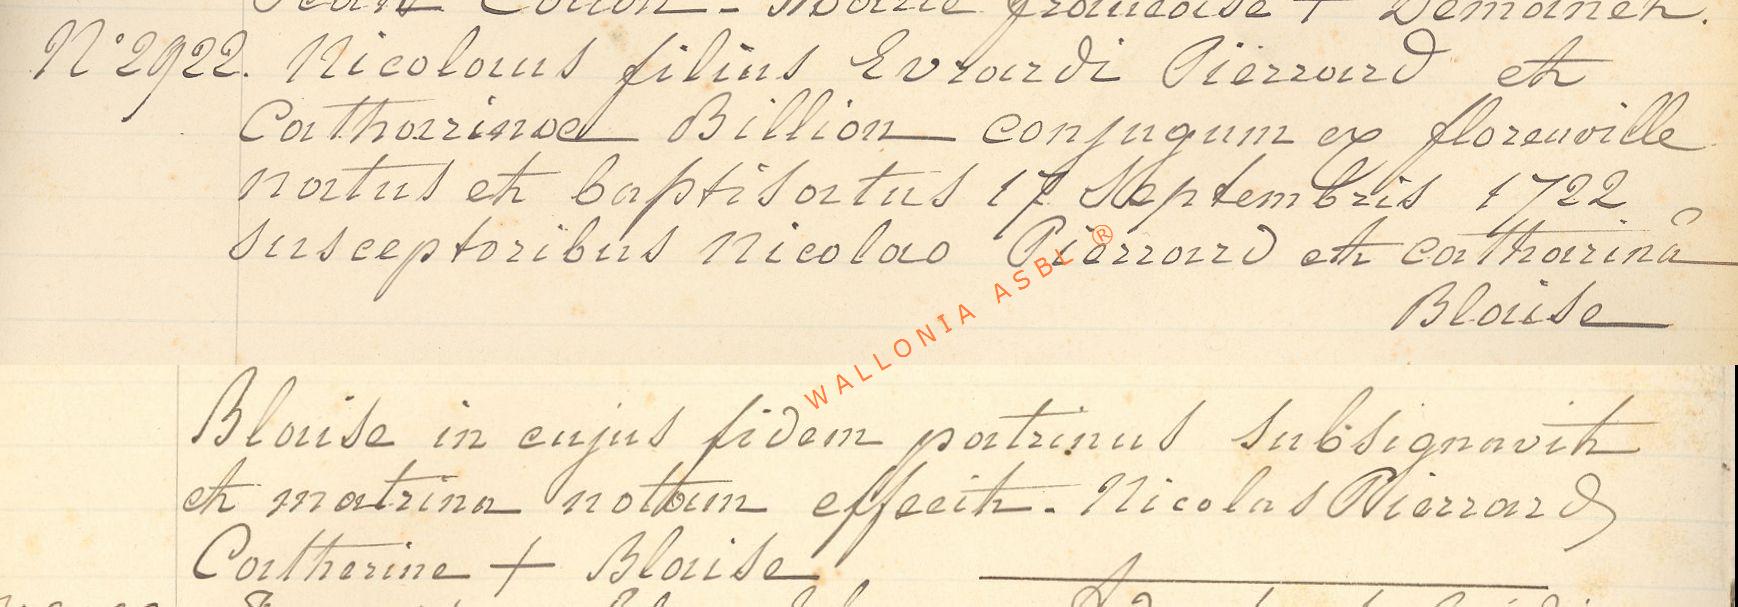 Jean Collon - Marie françoise + Demaneh.
N° 2922. Nicolaus filius Evrardi Pierrard eth
Catharinae Billion conjugum ex florenville
natus eth baptisatus 17 Septembris 1722
susceptoribus Nicolao Pierrard eth catharinâ
Blaise
WALLONIA ASBL ®
Blaise in cujus fidem patrinus subsignavith
eth matrina notam effecith. Nicolas Pierrard
Catherine + Blaise